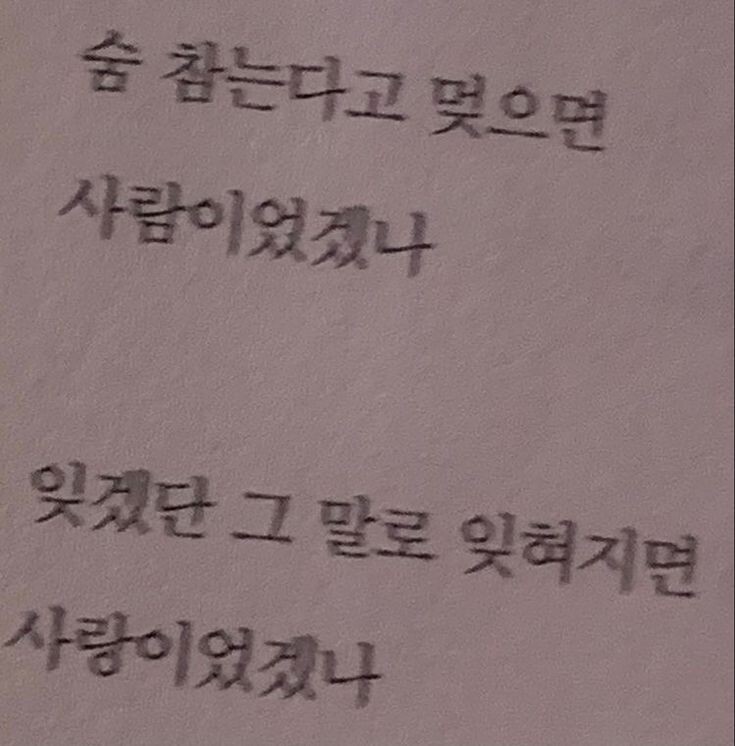 숨 참는다고 멎으면
사람이었겠나
잊겠단 그 말로 잊혀지면
사랑이었겠나